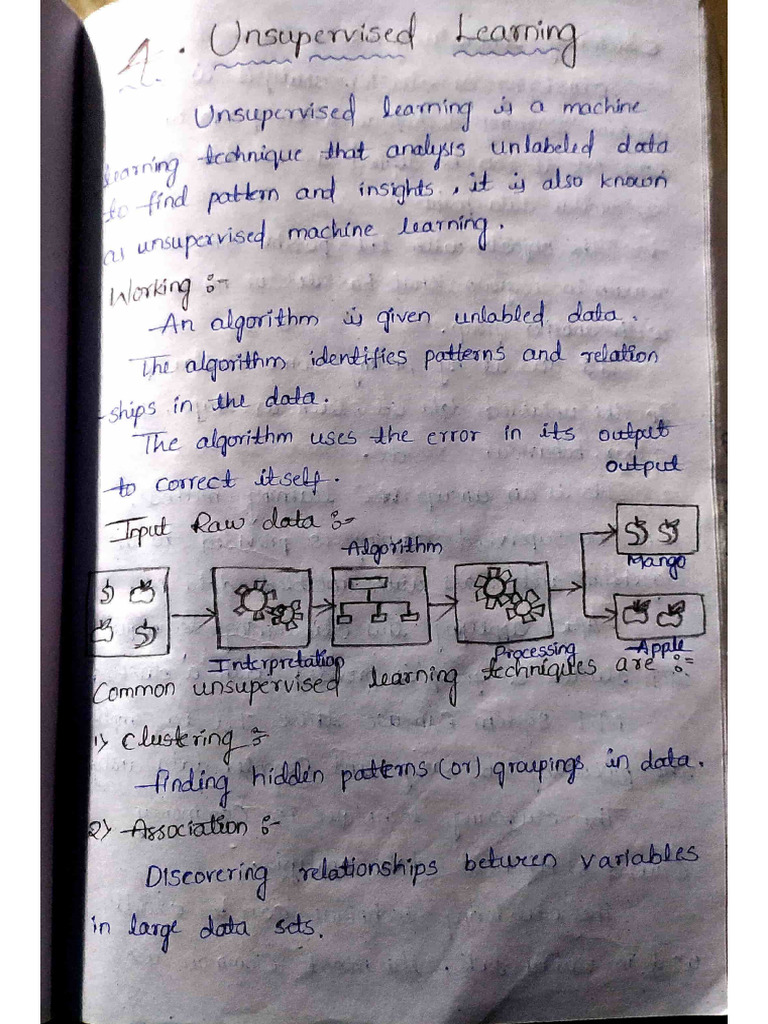 A. Unsupervised Learning
Unsupervised learning is a machine
learning technique that analysis unlabeled data
to find pattern and insights, it is also known
as unsupervised machine learning.
Working :-
An algorithm is given unlabled data.
The algorithm identifies patterns and relation
-ships in the data.
The algorithm uses the error in its output
to correct itself.
output
Input Raw data :-
Algorithm
Mango
Interpretation
Processing
Apple
Common unsupervised learning techniques are :-
1) Clustering :-
finding hidden patterns (or) groupings in data.
2) Association :-
Discovering relationships between variables
in large data sets.